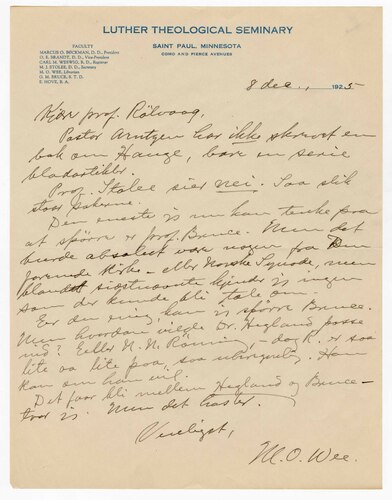 LUTHER THEOLOGICAL SEMINARY
SAINT PAUL, MINNESOTA
COMO AND PIERCE AVENUES
FACULTY
MARCUS O. BOCKMAN, D. D., President
O. E. BRANDT, D. D., Vice-President
CARL M. WESWIG, B. D., Registrar
M. J. STOLEE, D. D., Secretary
M. O. WEE, Librarian
G. M. BRUCE, S. T. D.
E. HOVE, B. A.
8 dec., 1925
Kjære prof. Rölvaag,
Pastor Arntzen har ikke skrevet en
bok om Hauge, bare en serie
bladartikler.
Prof. Stolee sier nei. Saa slik
staar sakerne.
Den eneste vi nu kan tenke paa
at spörre er prof. Bruce. Men det
burde absolut være nogen fra Den
forenede Kirke – eller Norske Synode, men
blandt sidstnævnte kjender vi ingen
som der kunde bli tale om.
Er du enig, kan vi spörre Bruce.
Men hvordan vilde Dr. Hegland passe
ind? Eller N. N. Rönning, – dog k. er saa
lite aa lite paa, saa uberegnelig. Han
kan om han vil.
Det faar bli mellem Hegland og Bruce –
tror jeg. Men det haster.
Venligst,
M. O. Wee.